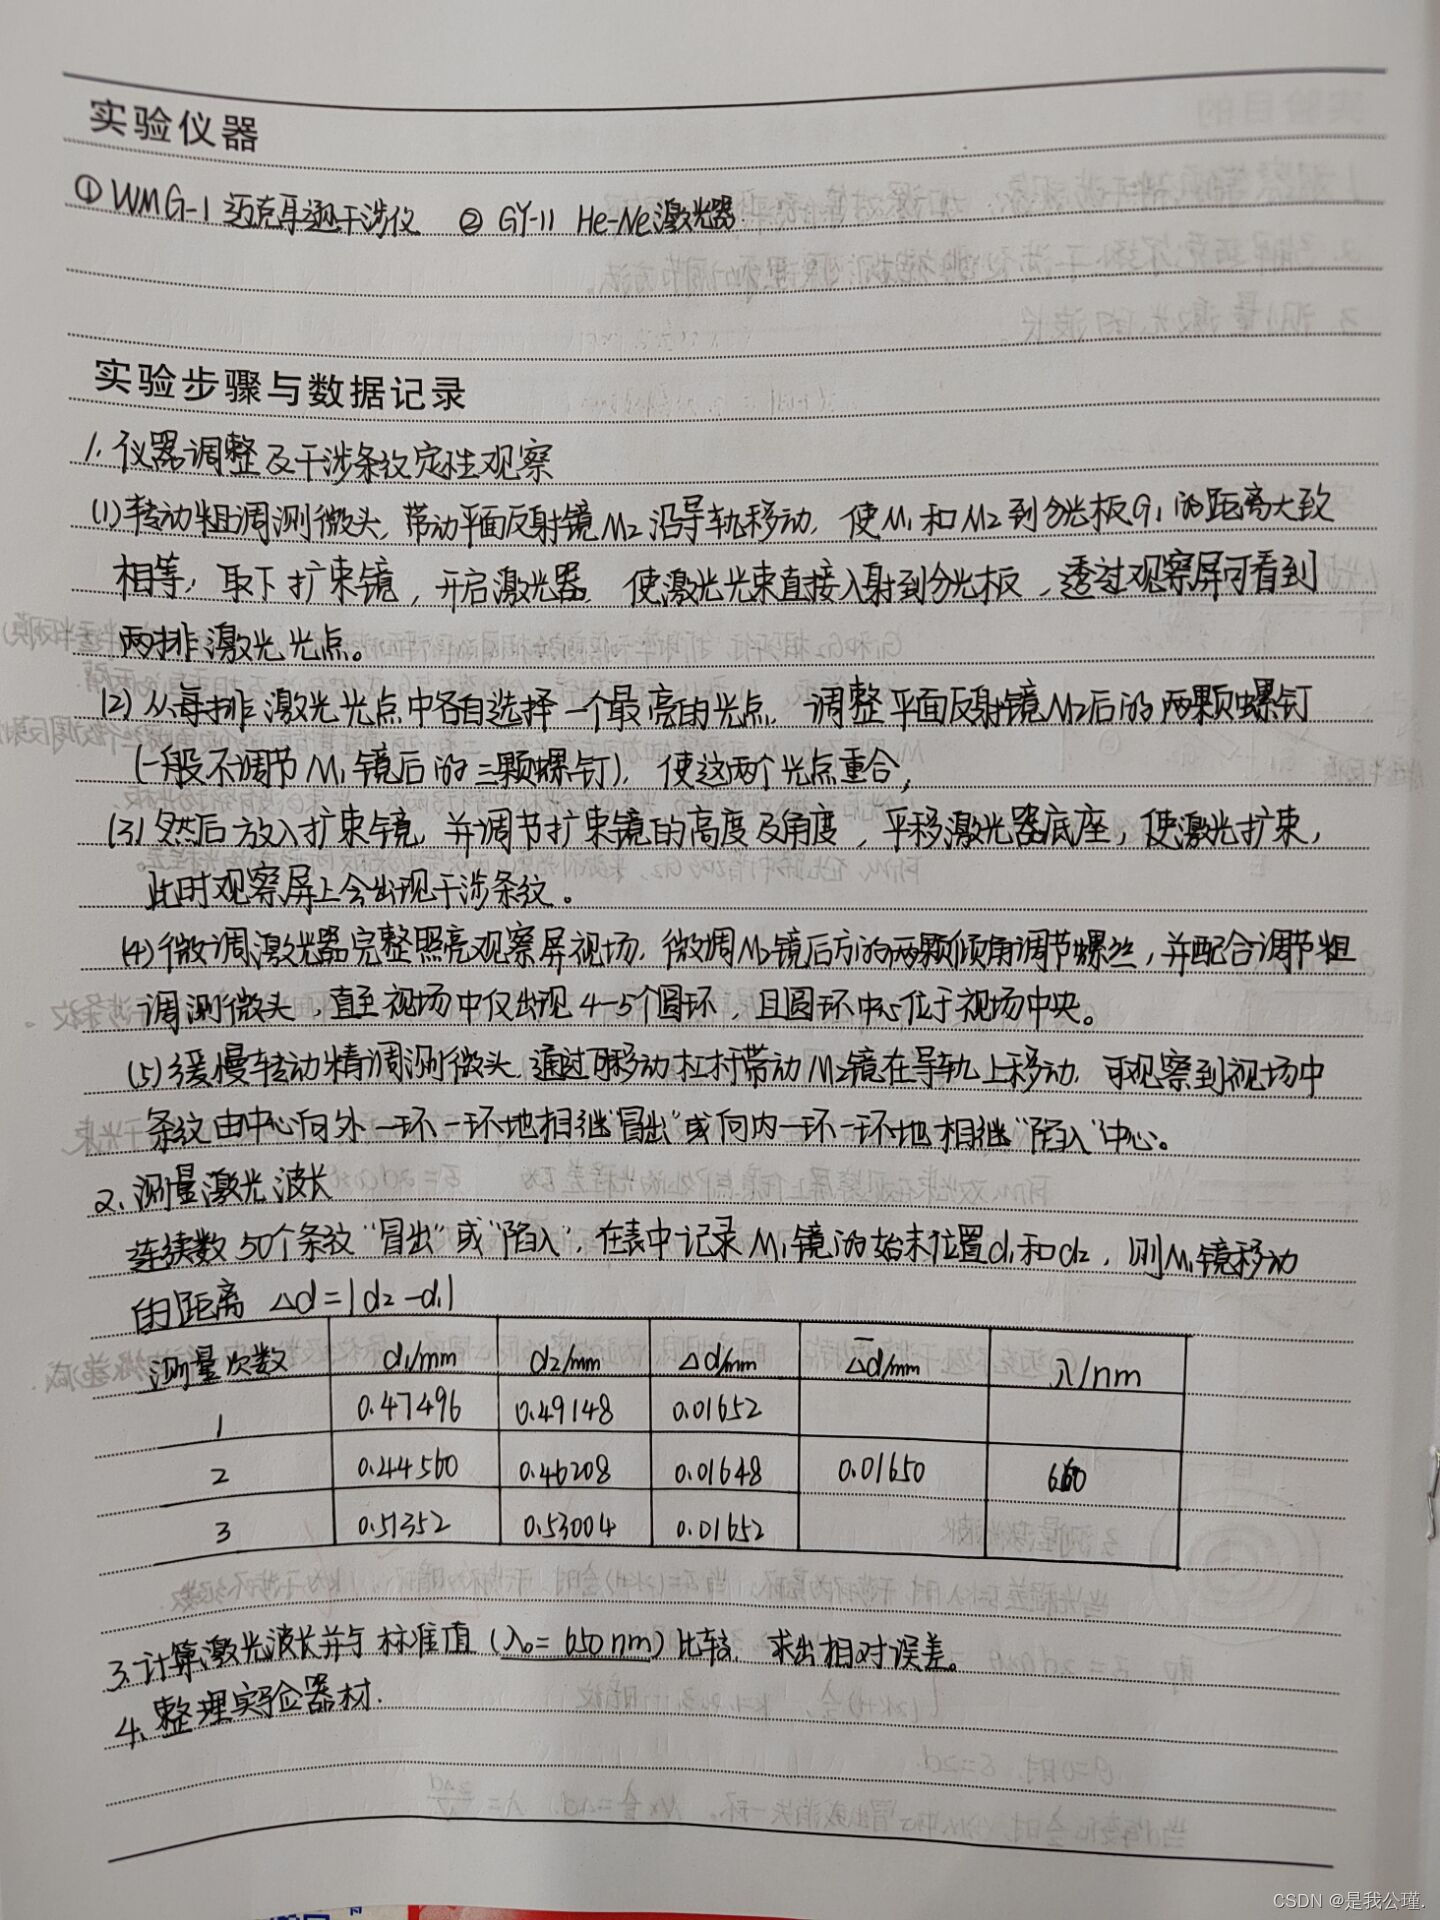 实验仪器
①WMG-1 迈克耳逊干涉仪 ② GY-11 He-Ne激光器.
实验步骤与数据记录
1.仪器调整及干涉条纹定性观察
(1)转动粗调测微头,带动平面反射镜M2沿导轨移动,使M1和M2到分光板G1的距离大致
相等,取下扩束镜,开启激光器,使激光光束直接入射到分光板,透过观察屏可看到
两排激光光点。
(2)从每排激光光点中各自选择一个最亮的光点,调整平面反射镜M2后的两颗螺钉
(一般不调节M1镜后的三颗螺钉),使这两个光点重合,
(3)然后放入扩束镜,并调节扩束镜的高度及角度,平移激光器底座,使激光扩束,
此时观察屏上会出现干涉条纹。
(4)微调激光器完整照亮观察屏视场,微调M2镜后方的两颗倾角调节螺丝,并配合调节粗
调测微头,直至视场中仅出现4-5个圆环,且圆环中心位于视场中央。
(5)缓慢转动精调测微头,通过移动杠杆带动M2镜在导轨上移动,可观察到视场中
条纹由中心向外一环一环地相继"冒出"或向内一环一环地相继"陷入"中心。
2.测量激光波长
连续数50个条纹"冒出"或"陷入",在表中记录M1镜的始末位置d1和d2,则M1镜移动
的距离 Δd=|d2-d1|
测量次数 d1/mm d2/mm Δd/mm Δd̅/mm λ/nm
1 0.47496 0.49148 0.01652
2 0.44560 0.46208 0.01648 0.01650 660
3 0.51352 0.53004 0.01652
3.计算激光波长并与标准值(λ0=650nm)比较,求出相对误差。
4.整理实验器材.
CSDN @是我公瑾.